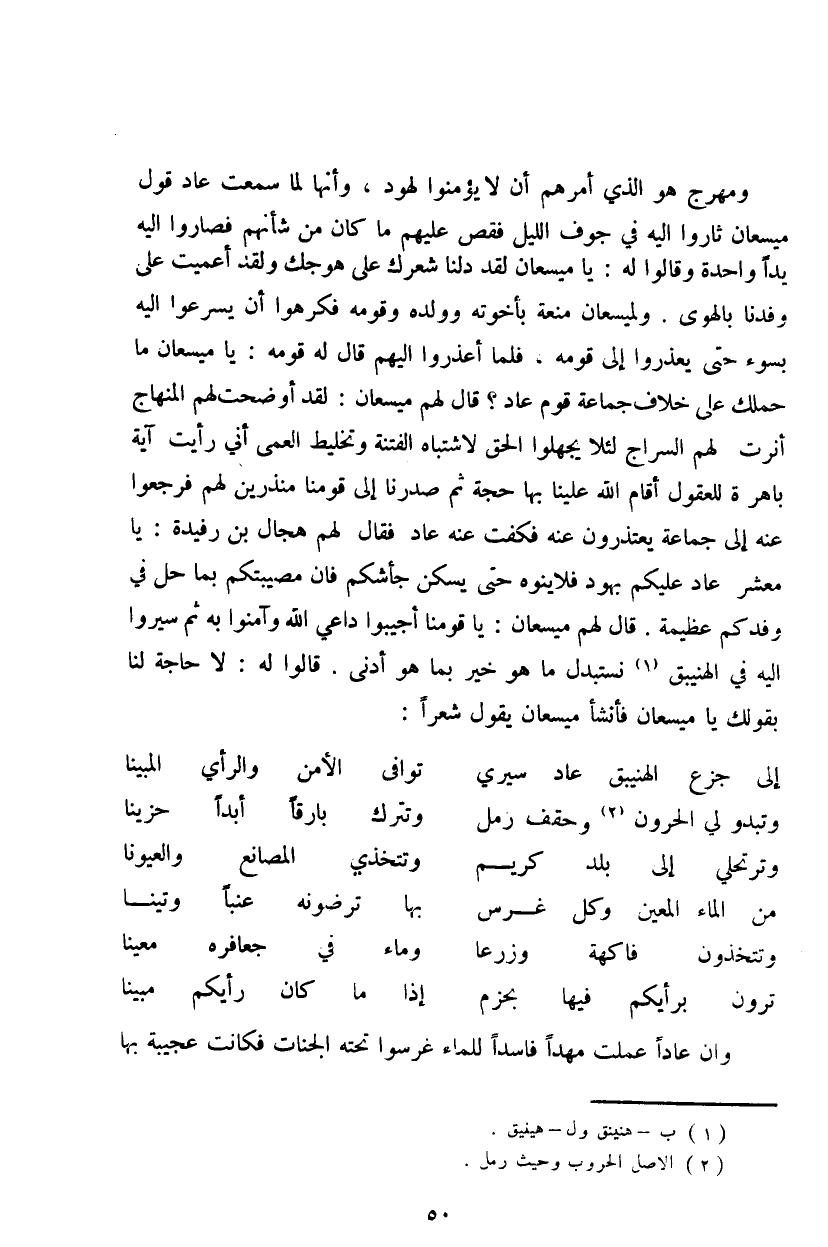 ومهرج هو الذي أمرهم أن لا يؤمنوا لهود ، وأنها لما سمعت عاد قول
ميسعان ثاروا اليه في جوف الليل فقص عليهم ما كان من شأنهم فصاروا اليه
يداً واحدة وقالوا له : يا ميسعان لقد دلنا شعرك على هوجك ولقد أعميت على
وفدنا بالهوى . ولميسعان منعة بأخوته وولده وقومه فكرهوا أن يسرعوا اليه
بسوء حتى يعذروا إلى قومه ، فلما أعذروا اليهم قال له قومه : يا ميسعان ما
حملك على خلاف جماعة قوم عاد ؟ قال لهم ميسعان : لقد أوضحت لهم المنهاج
أنرت لهم السراج لئلا يجهلوا الحق لاشتباه الفتنة وتخليط العمى أني رأيت آية
باهرة للعقول أقام الله علينا بها حجة ثم صدرنا إلى قومنا منذرين لهم فرجعوا
عنه إلى جماعة يعتذرون عنه فكفت عنه عاد فقال لهم هجال بن رفيدة : يا
معشر عاد عليكم بهود فلاينوه حتى يسكن جأشكم فان مصيبتكم بما حل في
وفدكم عظيمة . قال لهم ميسعان : يا قومنا أجيبوا داعي الله وآمنوا به ثم سيروا
اليه في الهنيبق (١) نستبدل ما هو خير بما هو أدنى . قالوا له : لا حاجة لنا
بقولك يا ميسعان فأنشأ ميسعان يقول شعراً :
إلى جزع الهنيبق عاد سيري توافى الأمن والرأي المبينا
وتبدو لي الحرون (٢) وحقف رمل وتترك بارقاً أبداً حزينا
وترتحلي إلى بلد كريــم وتتخذي المصانع والعيونا
من الماء المعين وكل غــرس بها ترضونه عنباً وتينــا
وتتخذون فاكهة وزرعا وماء في جعافره معينا
ترون برأيكم فيها بحزم إذا ما كان رأيكم مبينا
وان عاداً عملت مهداً فاسداً للماء غرسوا تحته الجنات فكانت عجيبة بها
(١) ب – هنينق ول – هينيق .
(٢) الاصل الحروب وحيث رمل .
٥٠